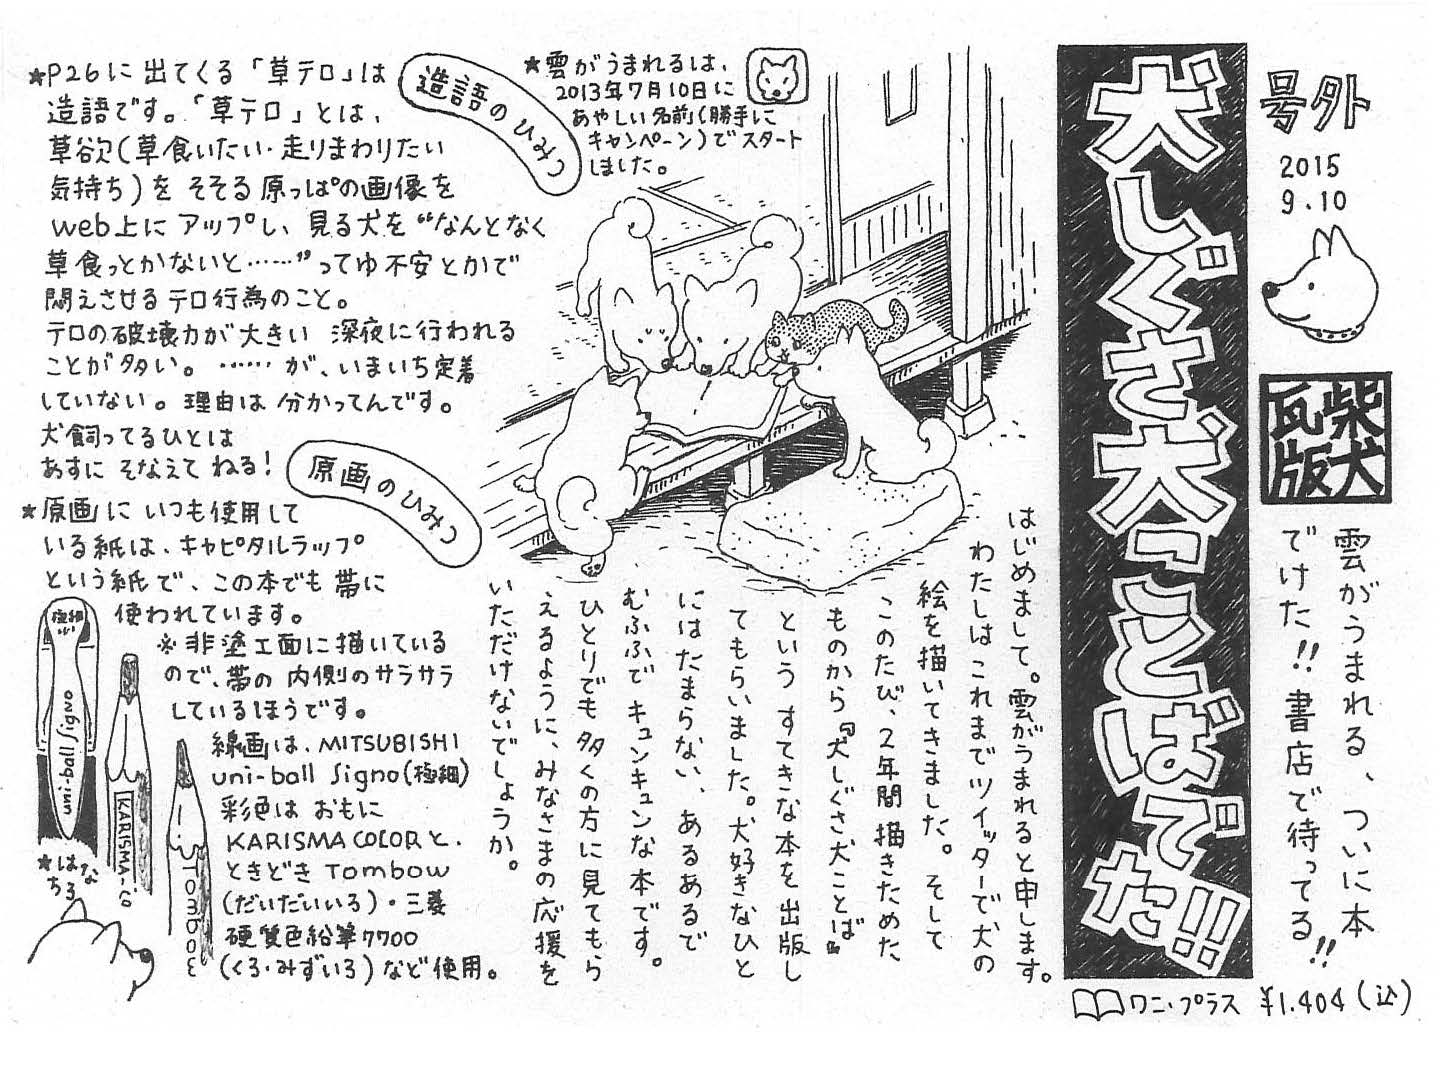 号外
2015
9.10
柴犬
瓦版
雲がうまれる、ついに本
でけた!!書店で待ってる!!
犬しぐさ犬ことばでた!!!
ワニ・プラス ¥1.404(込)
はじめまして。雲がうまれると申します。
わたしはこれまでツイッターで、犬の
絵を描いてきました。そして
このたび、2年間描きためた
ものから『犬しぐさ犬ことば』
という すてきな本を出版し
てもらいました。犬好きなひと
にはたまらない、あるあるで
むふふで キュンキュンな本です。
ひとりでも多くの方に見てもら
えるように、みなさまの応援を
いただけないでしょうか。
★雲がうまれるは、
2013年7月10日に
あやしい名前(勝手に
キャンペーン)でスタート
しました。
造語のひみつ
★P26に出てくる「草テロ」は
造語です。「草テロ」とは、
草欲(草食いたい・走りまわりたい
気持ち)を そそる原っぱの画像を
web上に アップし、見る犬を“なんとなく
草食っとかないと……”ってゆ不安とかで
悶えさせるテロ行為のこと。
テロの破壊力が大きい 深夜に行われる
ことが多い。……が、いまいち定着
していない。理由は 分かってんです。
犬飼ってるひとは
あすに そなえて ねる!
原画のひみつ
★原画に いつも使用して
いる紙は、キャピタルラップ
という紙で、この本でも 帯に
使われています。
※非塗工面に描いている
ので、帯の 内側のサラサラ
しているほうです。
線画は、MITSUBISHI
uni-ball Signo(極細)
彩色は おもに
KARISMA COLORと、
ときどき Tombow
(だいだいいろ)・三菱
硬質色鉛筆7700
(くろ・みずいろ)など使用。
極細
uni-ball Signo
KARISMA-CO
TOMBO
★はなぢろ